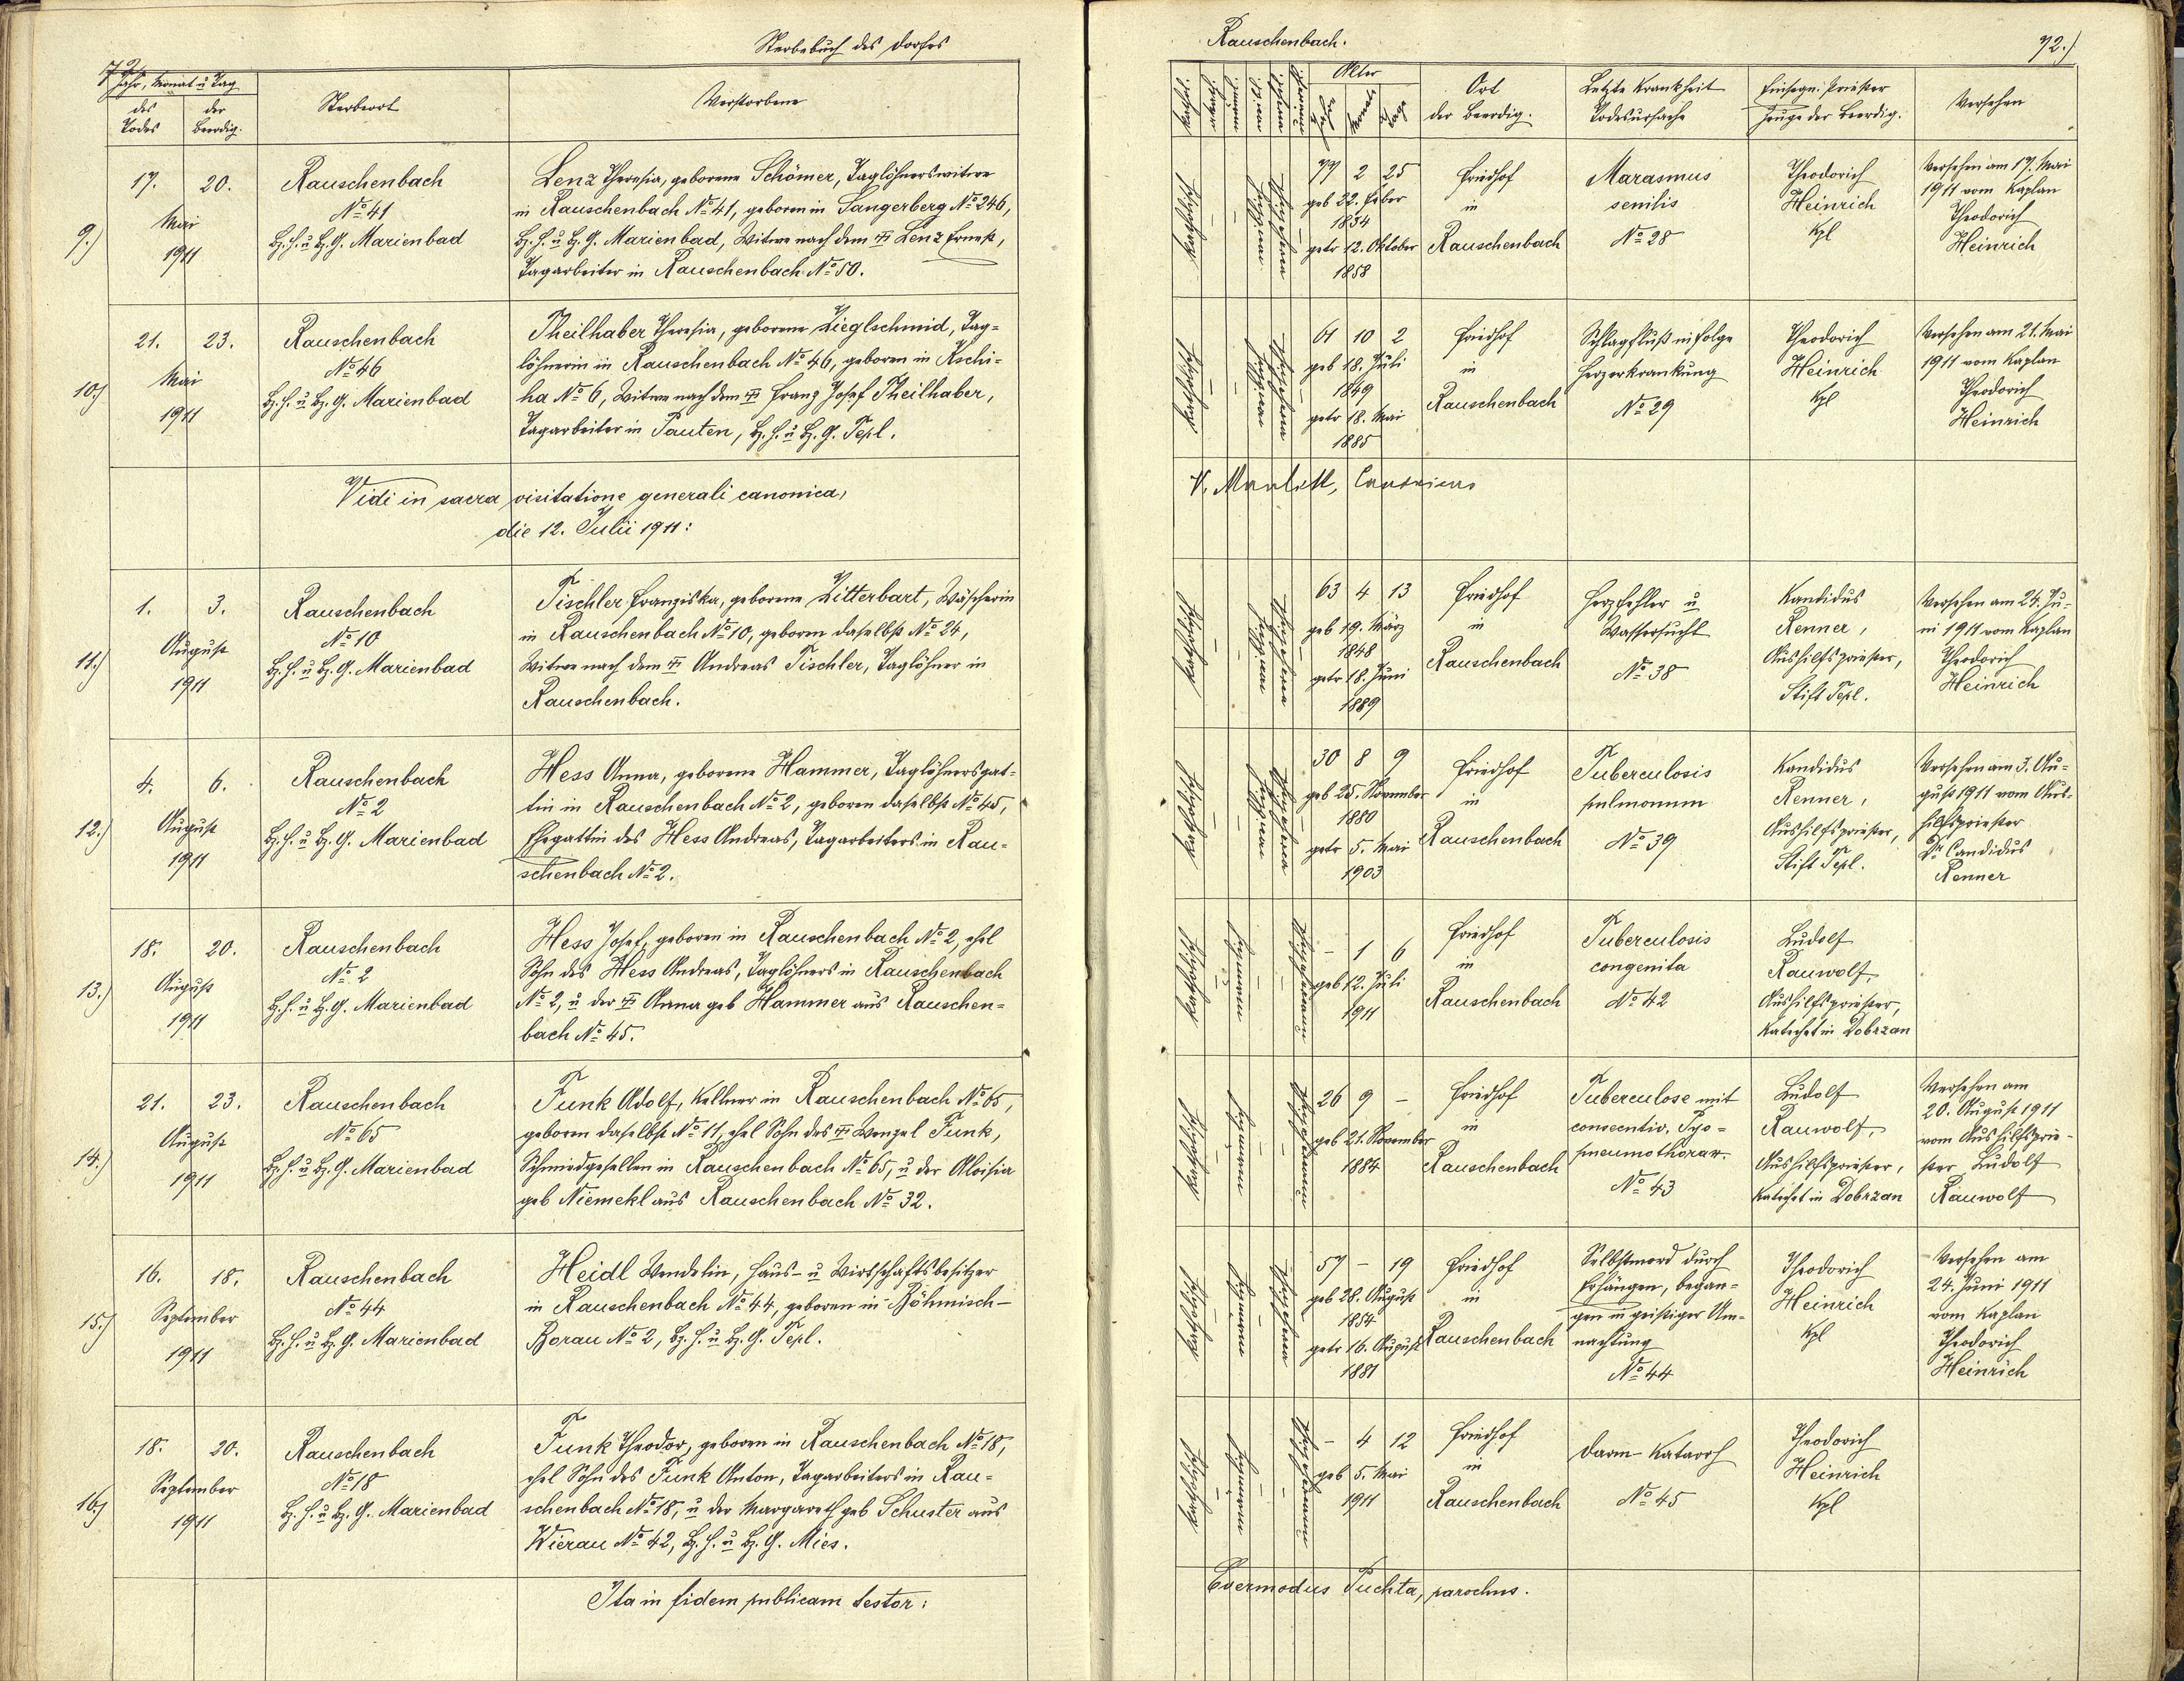 Sterbebuch des Dorfes
72
Jahr, Monat u Tag
des Todes
der Beerdig.
Sterbeort
Verstorbene
9.)
17.
20.
Mai
1911
Rauschenbach
No 41
Bz. H. u Bz. G. Marienbad
Lenz Theresia, geborene Schömer, Taglöhnerswitwe
in Rauschenbach No 41, geboren in Sangerberg No 246,
Bz. H. u Bz. G. Marienbad, Witwe nach dem Lenz Ernest,
Tagarbeiter in Rauschenbach No 50.
10.)
21.
23.
Mai
1911
Rauschenbach
No 46
Bz. H. u Bz. G. Marienbad
Theilhaber Theresia, geborene Zieglschmid, Tag=
löhnerin in Rauschenbach No 46, geboren in Kschi=
ha No 6, Witwe nach dem Franz Josef Theilhaber,
Tagarbeiter in Pauten, Bz. H. u Bz. G. Tepl.
Vidi in sacra visitatione generali canonica,
die 12. Julii 1911:
11.)
1.
3.
August
1911
Rauschenbach
No 10
Bz. H. u Bz. G. Marienbad
Tischler Franziska, geborene Zitterbart, Wäscherin
in Rauschenbach No 10, geboren daselbst No 24,
Witwe nach dem Andreas Tischler, Taglöhner in
Rauschenbach.
12.)
4.
6.
August
1911
Rauschenbach
No 2
Bz. H. u Bz. G. Marienbad
Hess Anna, geborene Hammer, Taglöhnersgat=
tin in Rauschenbach No 2, geboren daselbst No 45,
Ehegattin des Hess Andreas, Tagarbeiters in Rau=
schenbach No 2.
13.)
18.
20.
August
1911
Rauschenbach
No 2
Bz. H. u Bz. G. Marienbad
Hess Josef, geboren in Rauschenbach No 2, ehel
Sohn des Hess Andreas, Taglöhners in Rauschenbach
No 2, u der Anna geb Hammer aus Rauschen=
bach No 45.
14.)
21.
23.
August
1911
Rauschenbach
No 65
Bz. H. u Bz. G. Marienbad
Funk Adolf, Kellner in Rauschenbach No 65,
geboren daselbst No 11, ehel Sohn des Wenzel Funk,
Schmiedgesellen in Rauschenbach No 65, u der Aloisia
geb Niemekl aus Rauschenbach No 32.
15.)
16.
18.
September
1911
Rauschenbach
No 44
Bz. H. u Bz. G. Marienbad
Heidl Wendelin, Haus- u Wirtschaftsbesitzer
in Rauschenbach No 44, geboren in Böhmisch-
Borau No 2, Bz. H. u Bz. G. Tepl.
16.)
18.
20.
September
1911
Rauschenbach
No 18
Bz. H. u Bz. G. Marienbad
Funk Theodor, geboren in Rauschenbach No 18,
ehel Sohn des Funk Anton, Tagarbeiters in Rau=
schenbach No 18, u der Margareth geb Schuster aus
Wierau No 42, Bz. H. u Bz. G. Mies.
Ita in fidem publicam testor:
Rauschenbach.
72.)
Alter
Jahre
Monate
Tage
Ort
der Beerdig.
Letzte Krankheit
Todesursache
Einsegn. Priester
Zeuge der Beerdig.
Versehen
katholisch
77 2 25
geb 22. Feber
1834
getr 12. Oktober
1858
Friedhof
in
Rauschenbach
Marasmus
senilis
No 28
Theodorich
Heinrich
Kpl
Versehen am 17. Mai
1911 vom Kaplan
Theodorich
Heinrich
katholisch
61 10 2
geb 18. Juli
1849
getr 18. Mai
1885
Friedhof
in
Rauschenbach
Schlagfluß infolge
Herzerkrankung
No 29
Theodorich
Heinrich
Kpl
Versehen am 21. Mai
1911 vom Kaplan
Theodorich
Heinrich
katholisch
63 4 13
geb 19. März
1848
getr 18. Juni
1889
Friedhof
in
Rauschenbach
Herzfehler u
Wassersucht
No 38
Kandidus
Renner,
Aushilfspriester,
Stift Tepl.
Versehen am 24. Ju=
ni 1911 vom Kaplan
Theodorich
Heinrich
katholisch
30 8 9
geb 25. November
1880
getr 5. Mai
1903
Friedhof
in
Rauschenbach
Tuberculosis
pulmonum
No 39
Kandidus
Renner,
Aushilfspriester,
Stift Tepl.
Versehen am 3. Au=
gust 1911 vom Aus=
hilfspriester
Dr Candidus
Renner
katholisch
- 1 6
geb 12. Juli
1911
Friedhof
in
Rauschenbach
Tuberculosis
congenita
No 42
Ludolf
Rauwolf,
Aushilfspriester,
Katechet in Dobrzan
katholisch
26 9 -
geb 21. November
1884
Friedhof
in
Rauschenbach
Tuberculose mit
consecutiv. Pyo=
pneumothorax.
No 43
Ludolf
Rauwolf,
Aushilfspriester,
Katechet in Dobrzan
Versehen am
20. August 1911
vom Aushilfsprie=
ster Ludolf
Rauwolf
katholisch
57 - 19
geb 28. August
1854
getr 16. August
1881
Friedhof
in
Rauschenbach
Selbstmord durch
Erhängen, began=
gen in geistiger Um=
nachtung
No 44
Theodorich
Heinrich
Kpl
Versehen am
24. Juni 1911
vom Kaplan
Theodorich
Heinrich
katholisch
- 4 12
geb 5. Mai
1911
Friedhof
in
Rauschenbach
Darm-Katarrh
No 45
Theodorich
Heinrich
Kpl
Evermodus Puchta, parochus.